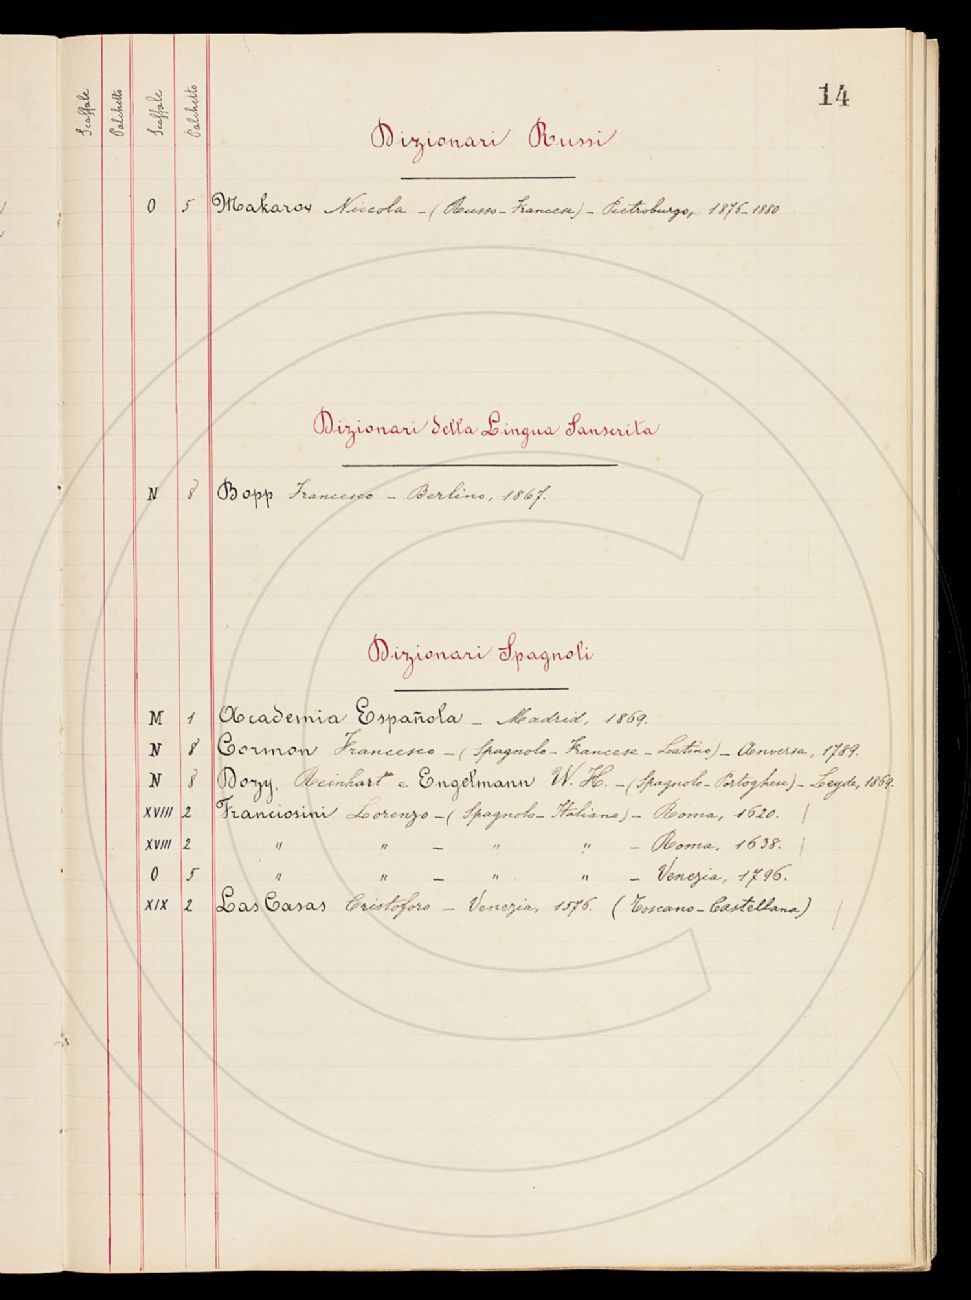 14
Scaffale Palchetto Scaffale Palchetto
Dizionari Russi
O 5 Makarow Niccola - (Russo-Francese) - Pietroburgo, 1876-1880
Dizionari della Lingua Sanscrita
N 8 Bopp Francesco - Berlino, 1867.
Dizionari Spagnoli
M 1 Academia Española - Madrid, 1869.
N 8 Cormon Francesco - (Spagnolo-Francese-Latino) - Anversa, 1789.
N 8 Dozy, Reinhart e Engelmann W. H. - (Spagnolo-Portoghese) - Leyde, 1869.
XVIII 2 Franciosini Lorenzo - (Spagnolo-Italiano) - Roma, 1620.
XVIII 2 " " - " " - Roma, 1638.
O 5 " " - " " - Venezia, 1796.
XIX 2 Las Casas Cristoforo - Venezia, 1576. (Toscano-Castellana)